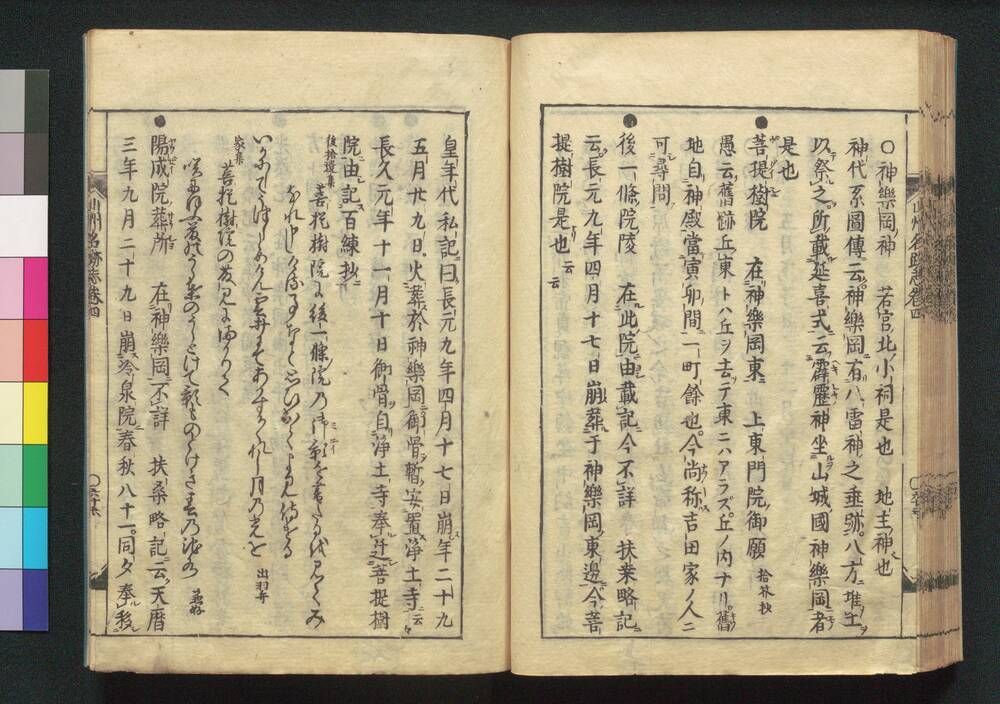 〇神樂岡神　若宮北小祠是也　地主神也
神代系圖傳云神樂岡有八雷神之垂跡八方堆土
以祭之所載延喜式云霹靂神坐山城國神樂岡者
是也
●菩提樹院　在神樂岡東　上東門院御願　拾芥抄
愚云舊跡丘東トハ丘ヲ去テ東ニハアラズ丘ノ内ナリ舊
地自神殿當寅卯間一町餘也今尚称吉田家ノ人ニ
可尋問
●後一條院陵　在此院由載記今不詳　扶桑略記
云長元九年四月十七日崩葬于神樂岡東邊今菩
提樹院是也云云
山州名跡志巻四
皇年代私記曰長元九年四月十七日崩年二十九
五月廿九日火葬於神樂岡御骨暫安置淨土寺云
長久元年十一月十日御骨自淨土寺奉迁菩提樹
院由記百練抄
後拾遺集　菩提樹院に後一條院の御影を書たるを見て
いかにしてうつしとめけん雲井にてあかすかくれし月の光を　出羽弁
家集　菩提樹院の花見にまかりて
●陽成院葬所　在神樂岡不詳　扶桑略記云天暦
三年九月二十九日崩冷泉院春秋八十一同夕奉移
山州名跡志巻四